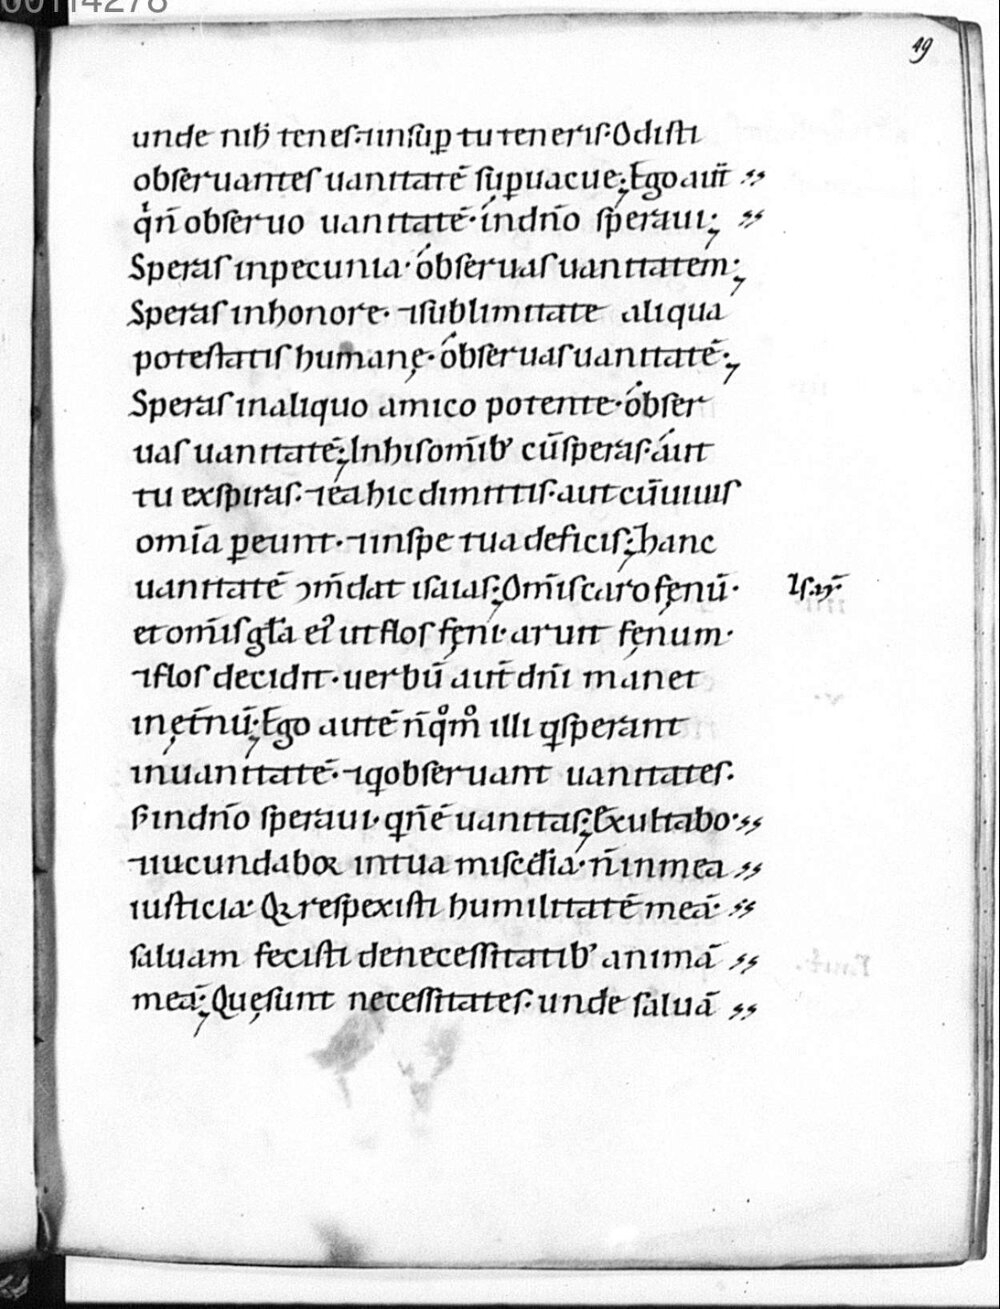 00114278
49
unde nih̄ tenes· ⁊insup̱ tu teneris· Odisti
obseruantes uanitatē sup̱uacue; Ego aut̄ ·,,
q̄n̄ obseruo uanitatē· in dn̄o speraui; ·,,
Speras inpecunia· obseruas uanitatem;
Speras inhonore· ⁊sublimitate aliqua
potestatis humanę· obseruas uanitatē·;
Speras inaliquo amico potente· obser
uas uanitatē; Inhis om̄ib' cū speras· aut
tu exspiras· ⁊ea hic dimittis· aut cū uiuis
om̄ia p̱eunt· ⁊inspe tua deficis; hanc
uanitatē ꝯm̄dat isaias; Om̄is caro fęnū·
et om̄is gl̄a ei' ut flos fęni· aruit fęnum·
⁊flos decidit· uerbū aut̄ dn̄i manet
in ęt̄nū; Ego autē n̄ q̊m̊ illi q̱sperant
inuanitatē· ⁊q̱obseruant uanitates·
s̄ indn̄o speraui· q̱ n̄ ē uanitas; Exultabo· ,,
⁊iucundaboꝛ intua mis̄cdia· n̄ inmea ·,,
iusticia· Qꝛ respexisti humilitatē meā· ·,,
saluam fecisti denecessitatib' animā ·,,
meā; Quę sunt necessitates· unde saluā ·,,